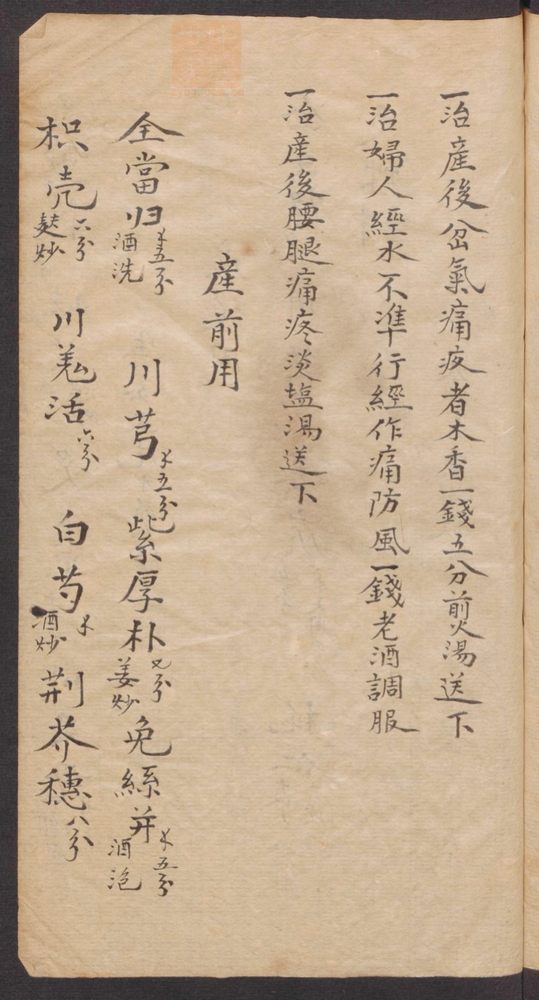 一治産後岔氣痛疾者木香一錢五分煎湯送下
一治婦人經水不準行經作痛防風一錢老酒調服
一治産後腰腿痛疼淡塩湯送下
産前用
全當归 五分 酒洗 川芎 五分 紫厚朴 七分 姜炒 兔絲并 五分 酒泡
枳壳 六分 麸炒 川羗活 六分 白芍 酒炒 荆芥穗 八分